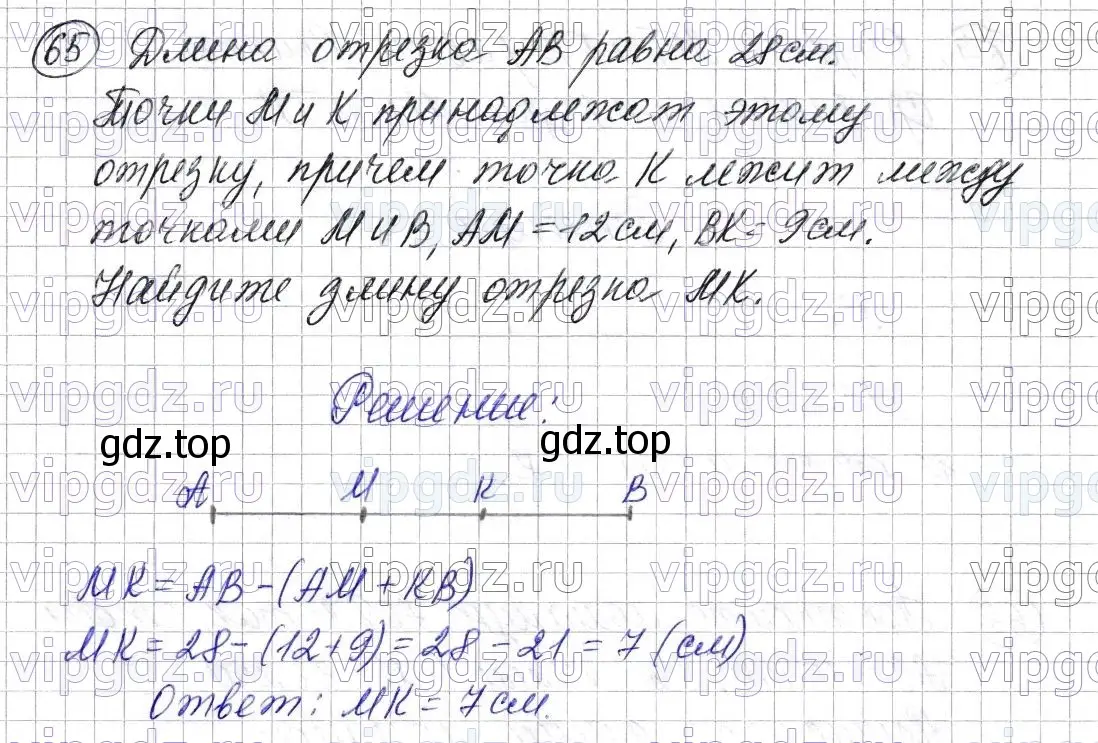 65 Длина отрезка AB равна 28 см.
Точки M и K принадлежат этому
отрезку, причем точка K лежит между
точками M и B, AM = 12 см, BK = 9 см.
Найдите длину отрезка MK.
Решение:
gdz.top gdz.top
A M K B
MK = AB - (AM + KB)
MK = 28 - (12+9) = 28 - 21 = 7 (см)
Ответ: MK = 7 см.
vipgdz.ru